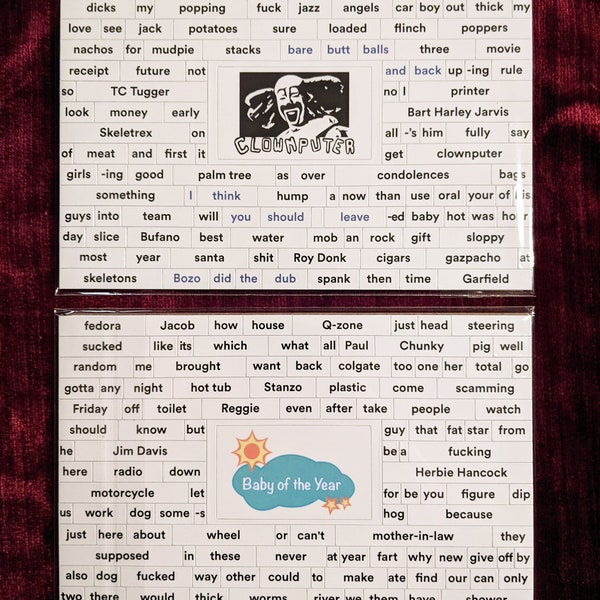 dicks my popping fuck jazz angels car boy out thick my
love see jack potatoes sure loaded flinch poppers
nachos for mudpie stacks bare butt balls three movie
receipt future not and back up -ing rule
so TC Tugger no I printer
look money early Bart Harley Jarvis
Skeletrex on all -'s him fully say
CLOWNPUTER
of meat and first it get clownputer
girls -ing good palm tree as over condolences bags
something I think hump a now than use oral your of his
guys into team will you should leave -ed baby hot was hour
day slice Bufano best water mob an rock gift sloppy
most year santa shit Roy Donk cigars gazpacho at
skeletons Bozo did the dub spank then time Garfield
fedora Jacob how house Q-zone just head steering
sucked like its which what all Paul Chunky pig well
random me brought want back colgate too one her total go
gotta any night hot tub Stanzo plastic come scamming
Friday off toilet Reggie even after take people watch
should know but guy that fat star from
he Jim Davis be a fucking
here radio down Herbie Hancock
Baby of the Year
motorcycle let for be you figure dip
us work dog some -s hog because
just here about wheel or can't mother-in-law they
supposed in these never at year fart why new give off by
also dog fucked way other could to make ate find our can only
two there would thick worms river we them have shower